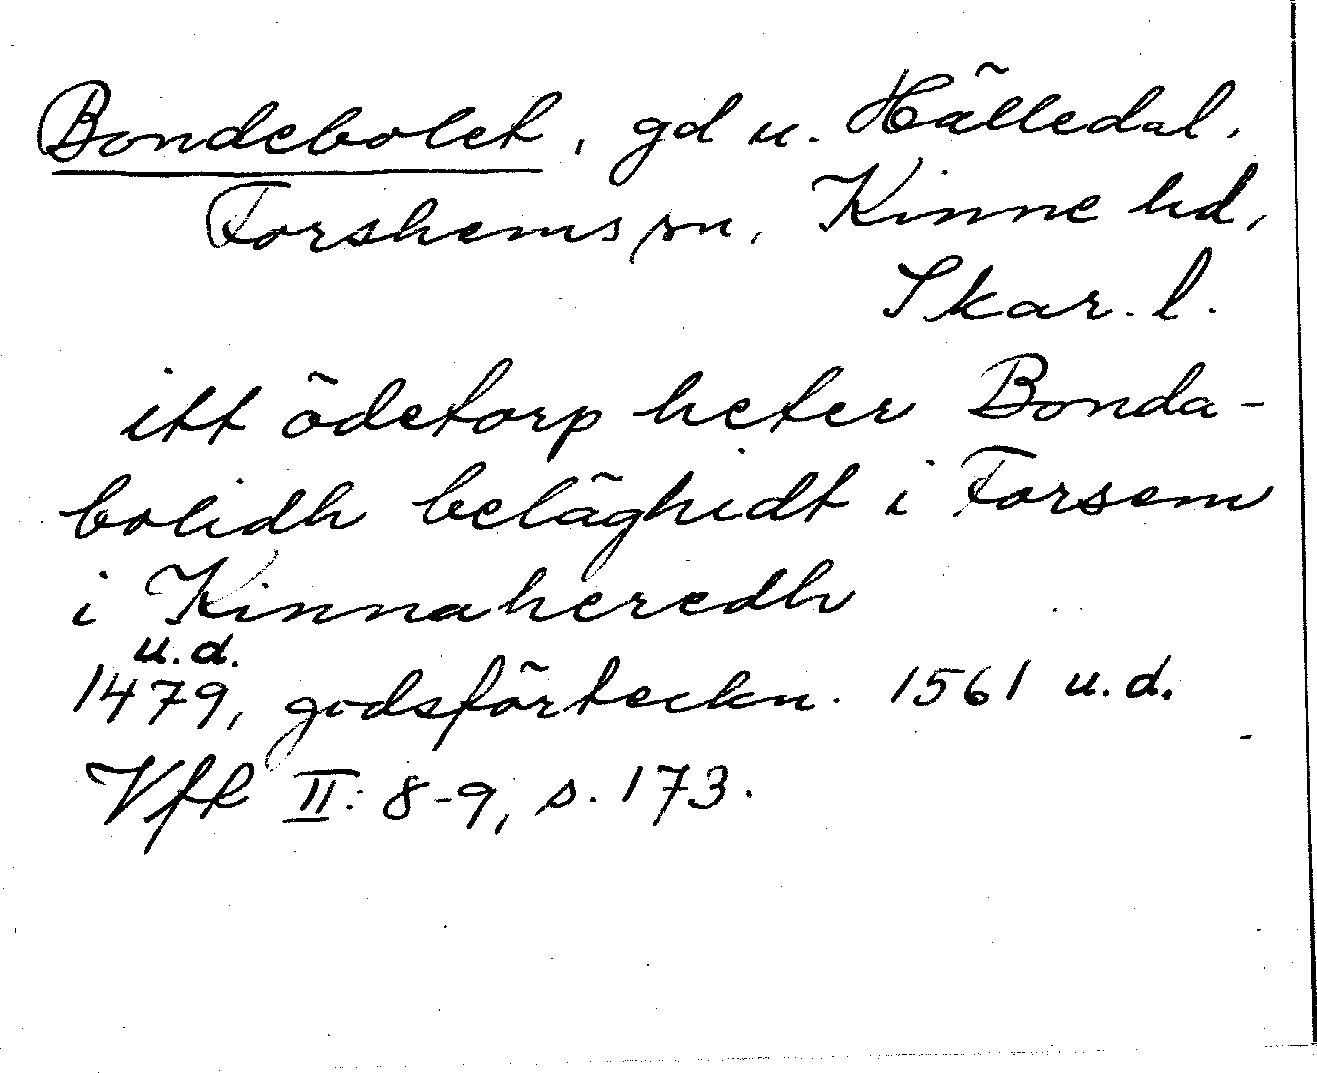 Bondebolet, gd u. Hälledal,
Forshems sn, Kinne hd,
Skar. l.
itt ödetorp heter Bonda-
bolidh beläghidt i Forsem
i Kinnaheredh
u.d.
1479, godsförteckn. 1561 u.d.
Vfk II: 8-9, s. 173.